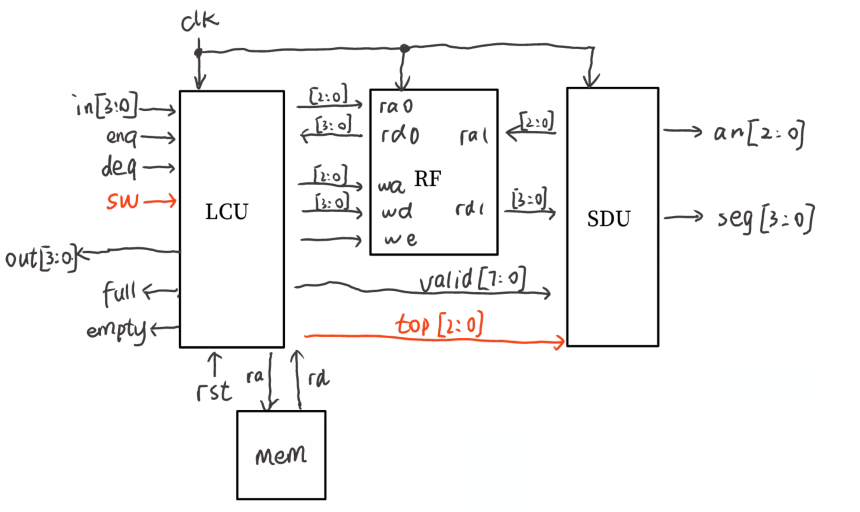 clk
in[3:0]
enq
deq
sw
out[3:0]
full
empty
rst
LCU
[2:0]
[3:0]
[2:0]
[3:0]
ra0
rd0
wa
wd
we
RF
ra1
rd1
[2:0]
[3:0]
valid[7:0]
top[2:0]
SDU
an[2:0]
seg[3:0]
ra
rd
mem